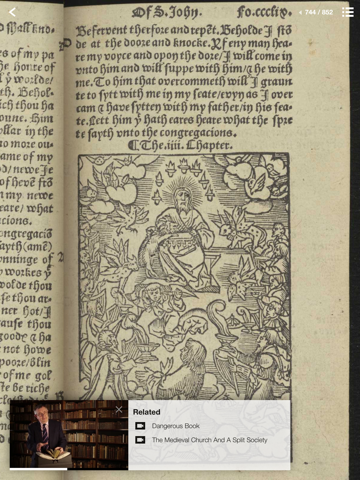 Of S. John.
Fo. ccclix.
744 / 852
Be fervent therfore and repẽt. Beholde J stõ
de at the doore and knocke. Yf eny man hea-
re my voyce and opon the dore/ J will come in
vnto him and will suppe with him/ & he with
me. To him that overcommeth will J graun-
te to sytt with me in my seate/ evyn as J over
cam & have sytten with my father/ in his sea-
te. Lett him yͭ hath eares heare what the spre
te sayth vnto the congregacions.
The .iiii. Chapter.
of my pa
the houre of
yͤ worlde/
th. Behol-
ich thou ha
oune. Him
yllar in the
no more ou-
ame of my
of hevẽ frõ
my newe
eare/ what
cions.
ongregaciõ
sayth (amẽ)
ynninge of
y workes yͭ
wolde thou
se thou ar-
nce hot/ J
cause thou
goodꝭ & ha
not howe
poore/ blin
of me gol
ste be riche
Related
Dangerous Book
The Medieval Church And A Split Society